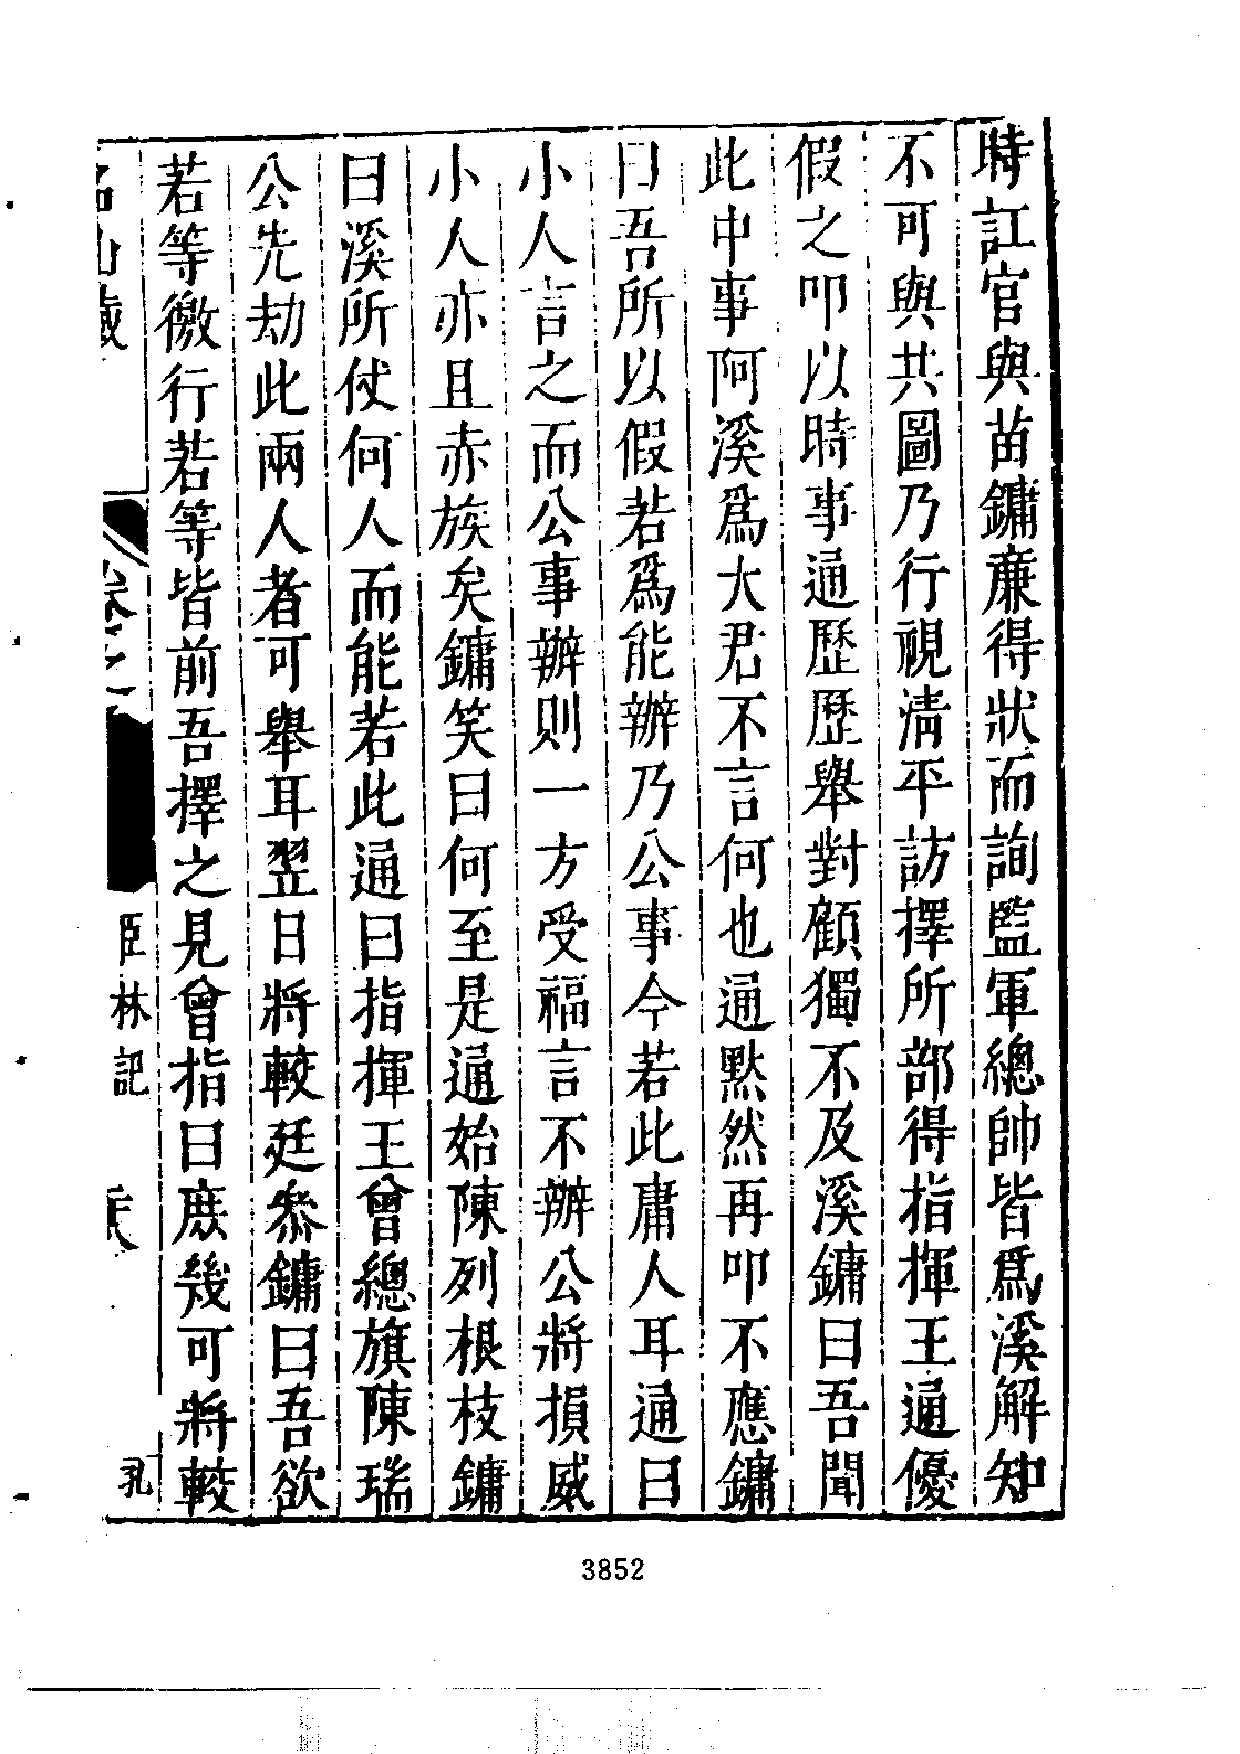 時訌官與苗鏞廉得狀而詢監軍總帥皆爲溪解知
不可與共圖乃行視清平訪擇所部得指揮王通優
假之叩以時事通歷歷舉對顧獨不及溪鏞曰吾聞
此中事阿溪爲大君不言何也通默然再叩不應鏞
曰吾所以假若爲能辦乃公事今若此庸人耳通曰
小人言之而公事辦則一方受福言不辦公將損威
小人亦且赤族矣鏞笑曰何至是通始陳列根枝鏞
曰溪所仗何人而能若此通曰指揮王曾總旗陳瑞
公先劫此兩人者可舉耳翌日將較廷叅鏞曰吾欲
若等徼行若等皆前吾擇之見曾指曰庶幾可將較
名山藏 臣林記
3852